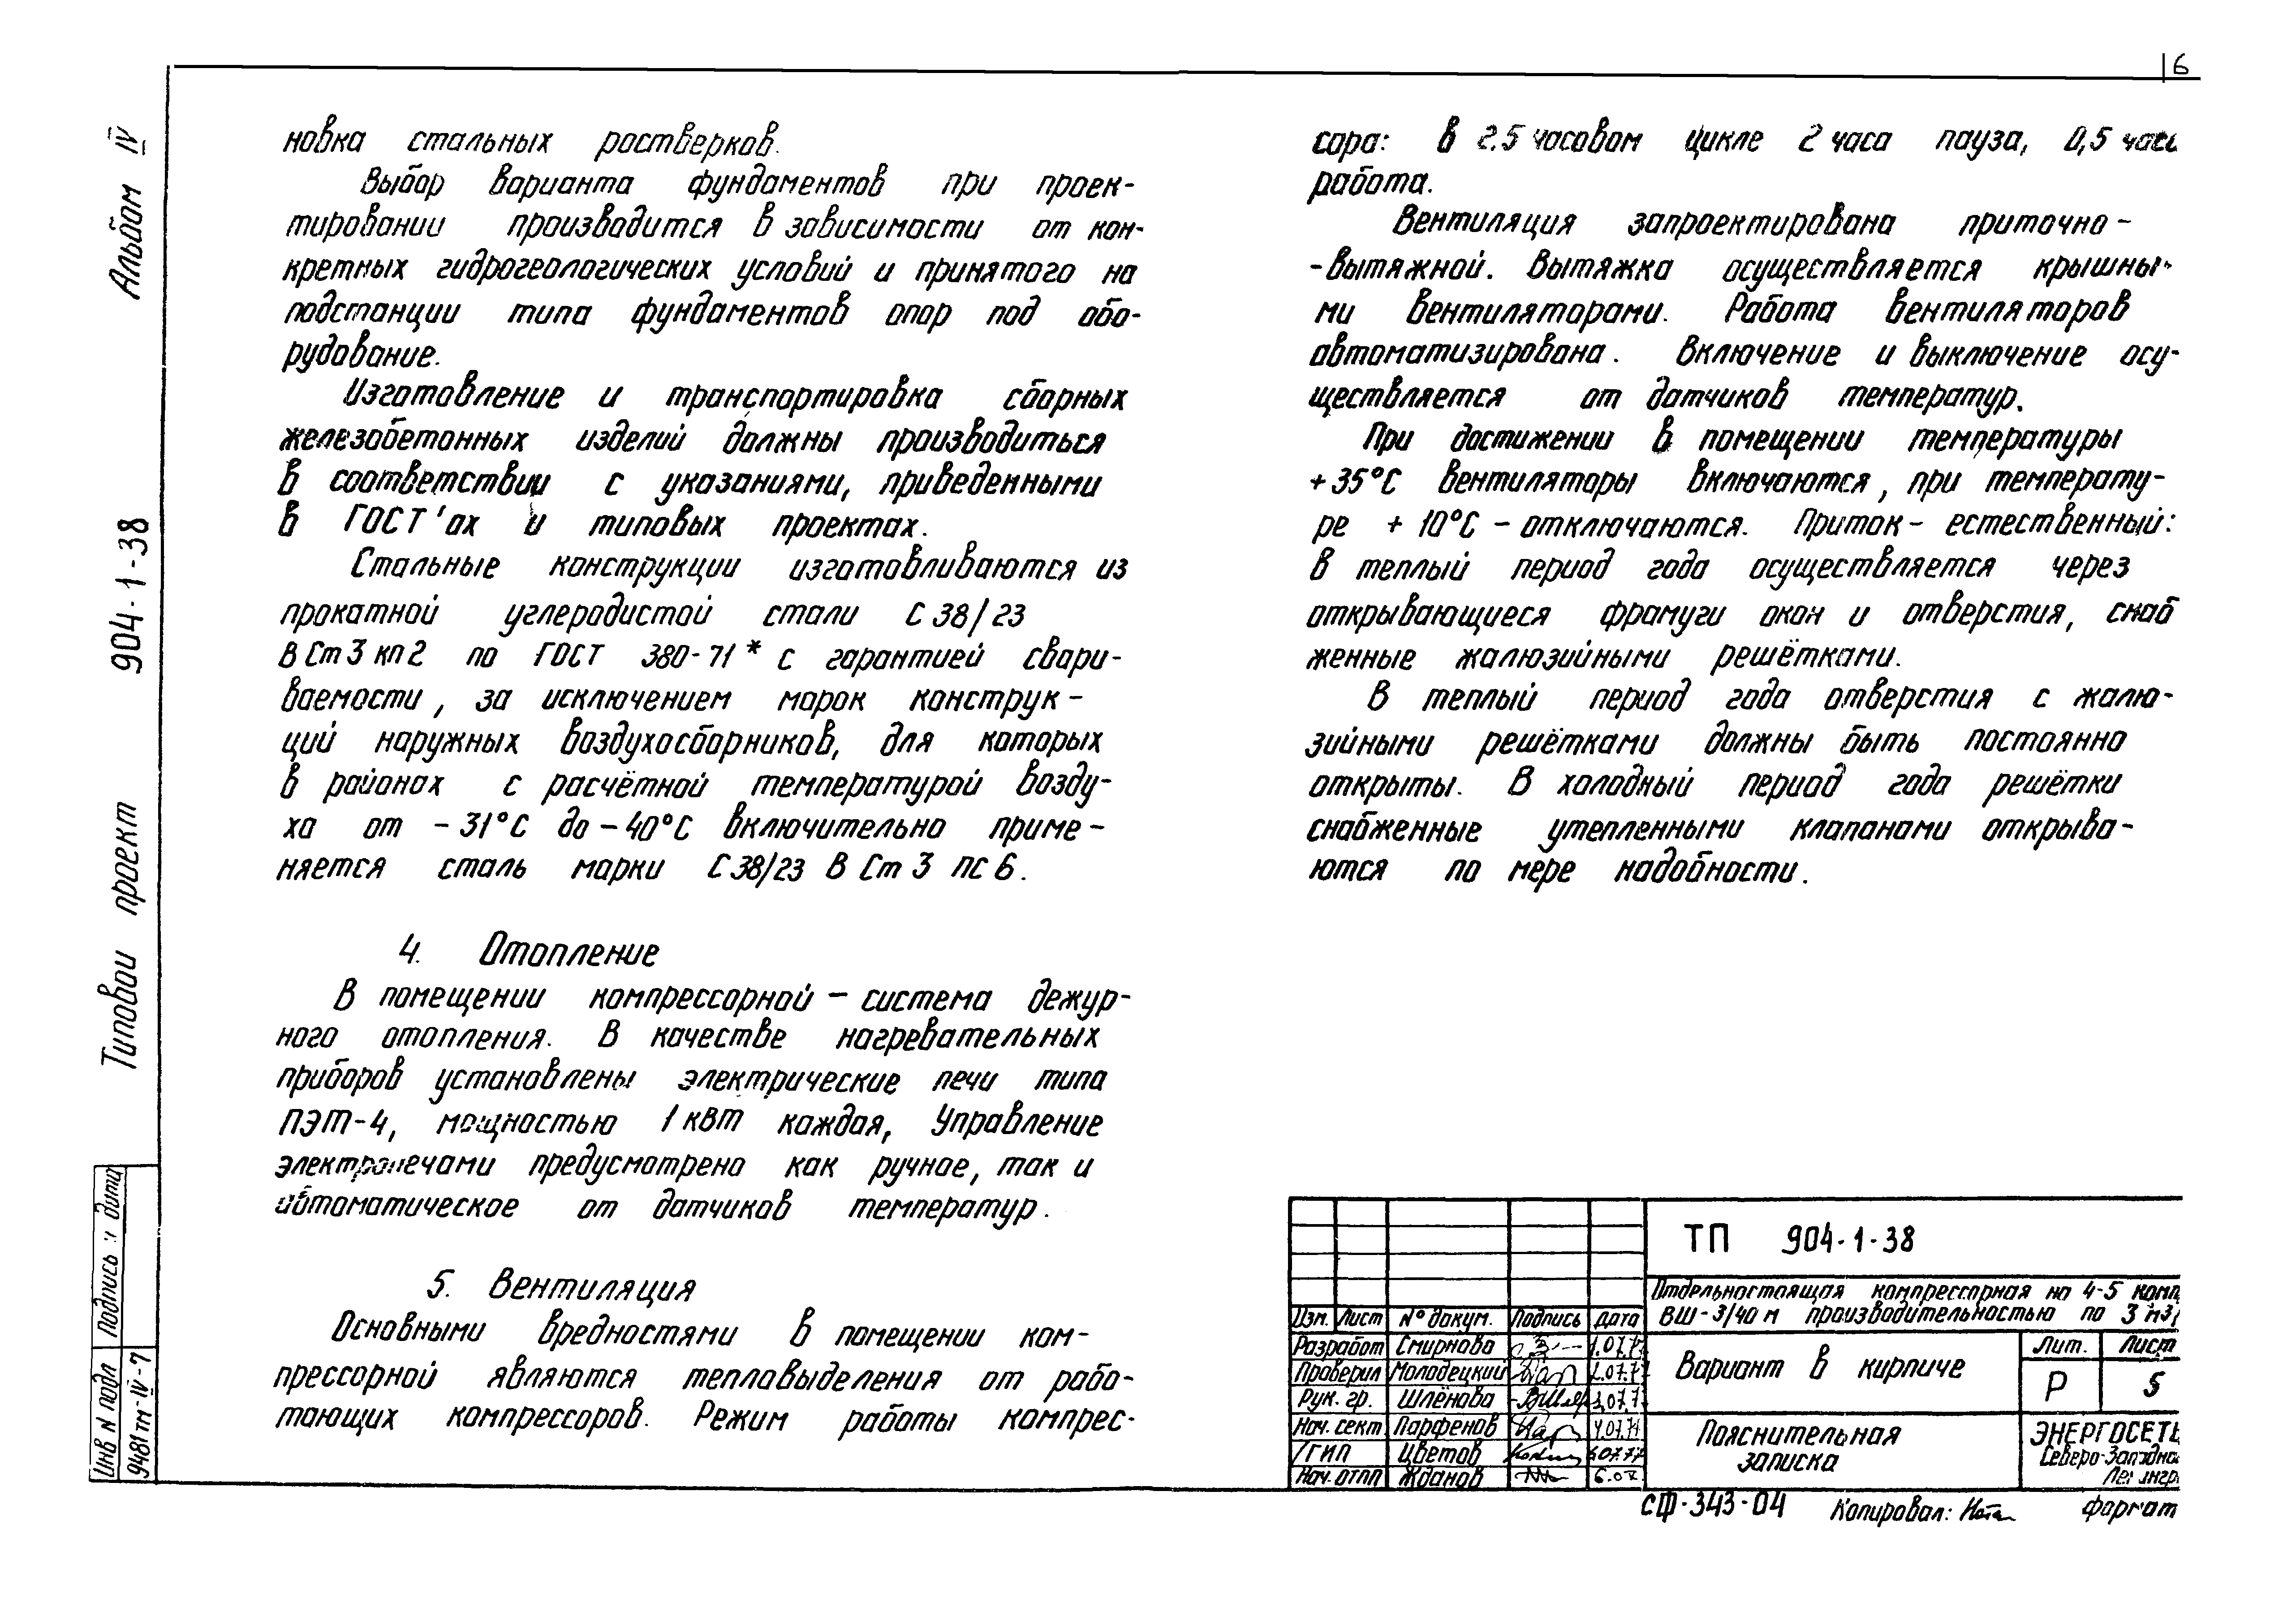 6
новка стальных ростверков.
Выбор варианта фундаментов при проек-
тировании производится в зависимости от кон-
кретных гидрогеологических условий и принятого на
подстанции типа фундаментов опор под обо-
рудование.
Изготовление и транспортировка сборных
железобетонных изделий должны производиться
в соответствии с указаниями, приведенными
в ГОСТ'ах и типовых проектах.
Стальные конструкции изготавливаются из
прокатной углеродистой стали С 38/23
В Ст 3 кп 2 по ГОСТ 380-71* с гарантией свари-
ваемости, за исключением марок конструк-
ций наружных воздухосборников, для которых
в районах с расчётной температурой возду-
ха от -31°С до -40°С включительно приме-
няется сталь марки С 38/23 В Ст 3 пс 6.
4. Отопление
В помещении компрессорной - система дежур-
ного отопления. В качестве нагревательных
приборов установлены электрические печи типа
ПЭТ-4, мощностью 1 квт каждая, Управление
электропечами предусмотрено как ручное, так и
автоматическое от датчиков температур.
5. Вентиляция
Основными вредностями в помещении ком-
прессорной являются тепловыделения от рабо-
тающих компрессоров. Режим работы компрес-
сора: в 2.5 часовом цикле 2 часа пауза, 0,5 часа
работа.
Вентиляция запроектирована приточно-
-вытяжной. Вытяжка осуществляется крышны-
ми вентиляторами. Работа вентиляторов
автоматизирована. Включение и выключение осу-
ществляется от датчиков температур.
При достижении в помещении температуры
+35°С вентиляторы включаются, при температу-
ре +10°С - отключаются. Приток - естественный:
в теплый период года осуществляется через
открывающиеся фрамуги окон и отверстия, снаб
женные жалюзийными решётками.
В теплый период года отверстия с жалю-
зийными решётками должны быть постоянно
открыты. В холодный период года решётки
снабженные утепленными клапанами открыва-
ются по мере надобности.
Альбом IV
904-1-38
Типовой проект
Подпись и дата
Инв N подл
9481тм-IV-7
ТП 904-1-38
Отдельностоящая компрессорная на 4-5 комп
ВШ-3/40м производительностью по 3 м3/
Изм. Лист N° докум. Подпись Дата
Разработ Смирнова
Проверил Молодецкий
Рук. гр. Шлёнова
Нач. сект Парфенов
ГИП Цветов
Нач. отп Жданов
Вариант в кирпиче
Лит. Лист
Р 5
Пояснительная
записка
ЭНЕРГОСЕТЬ
Северо-Западно
Ленингр
СФ-343-04 Копировал: формат